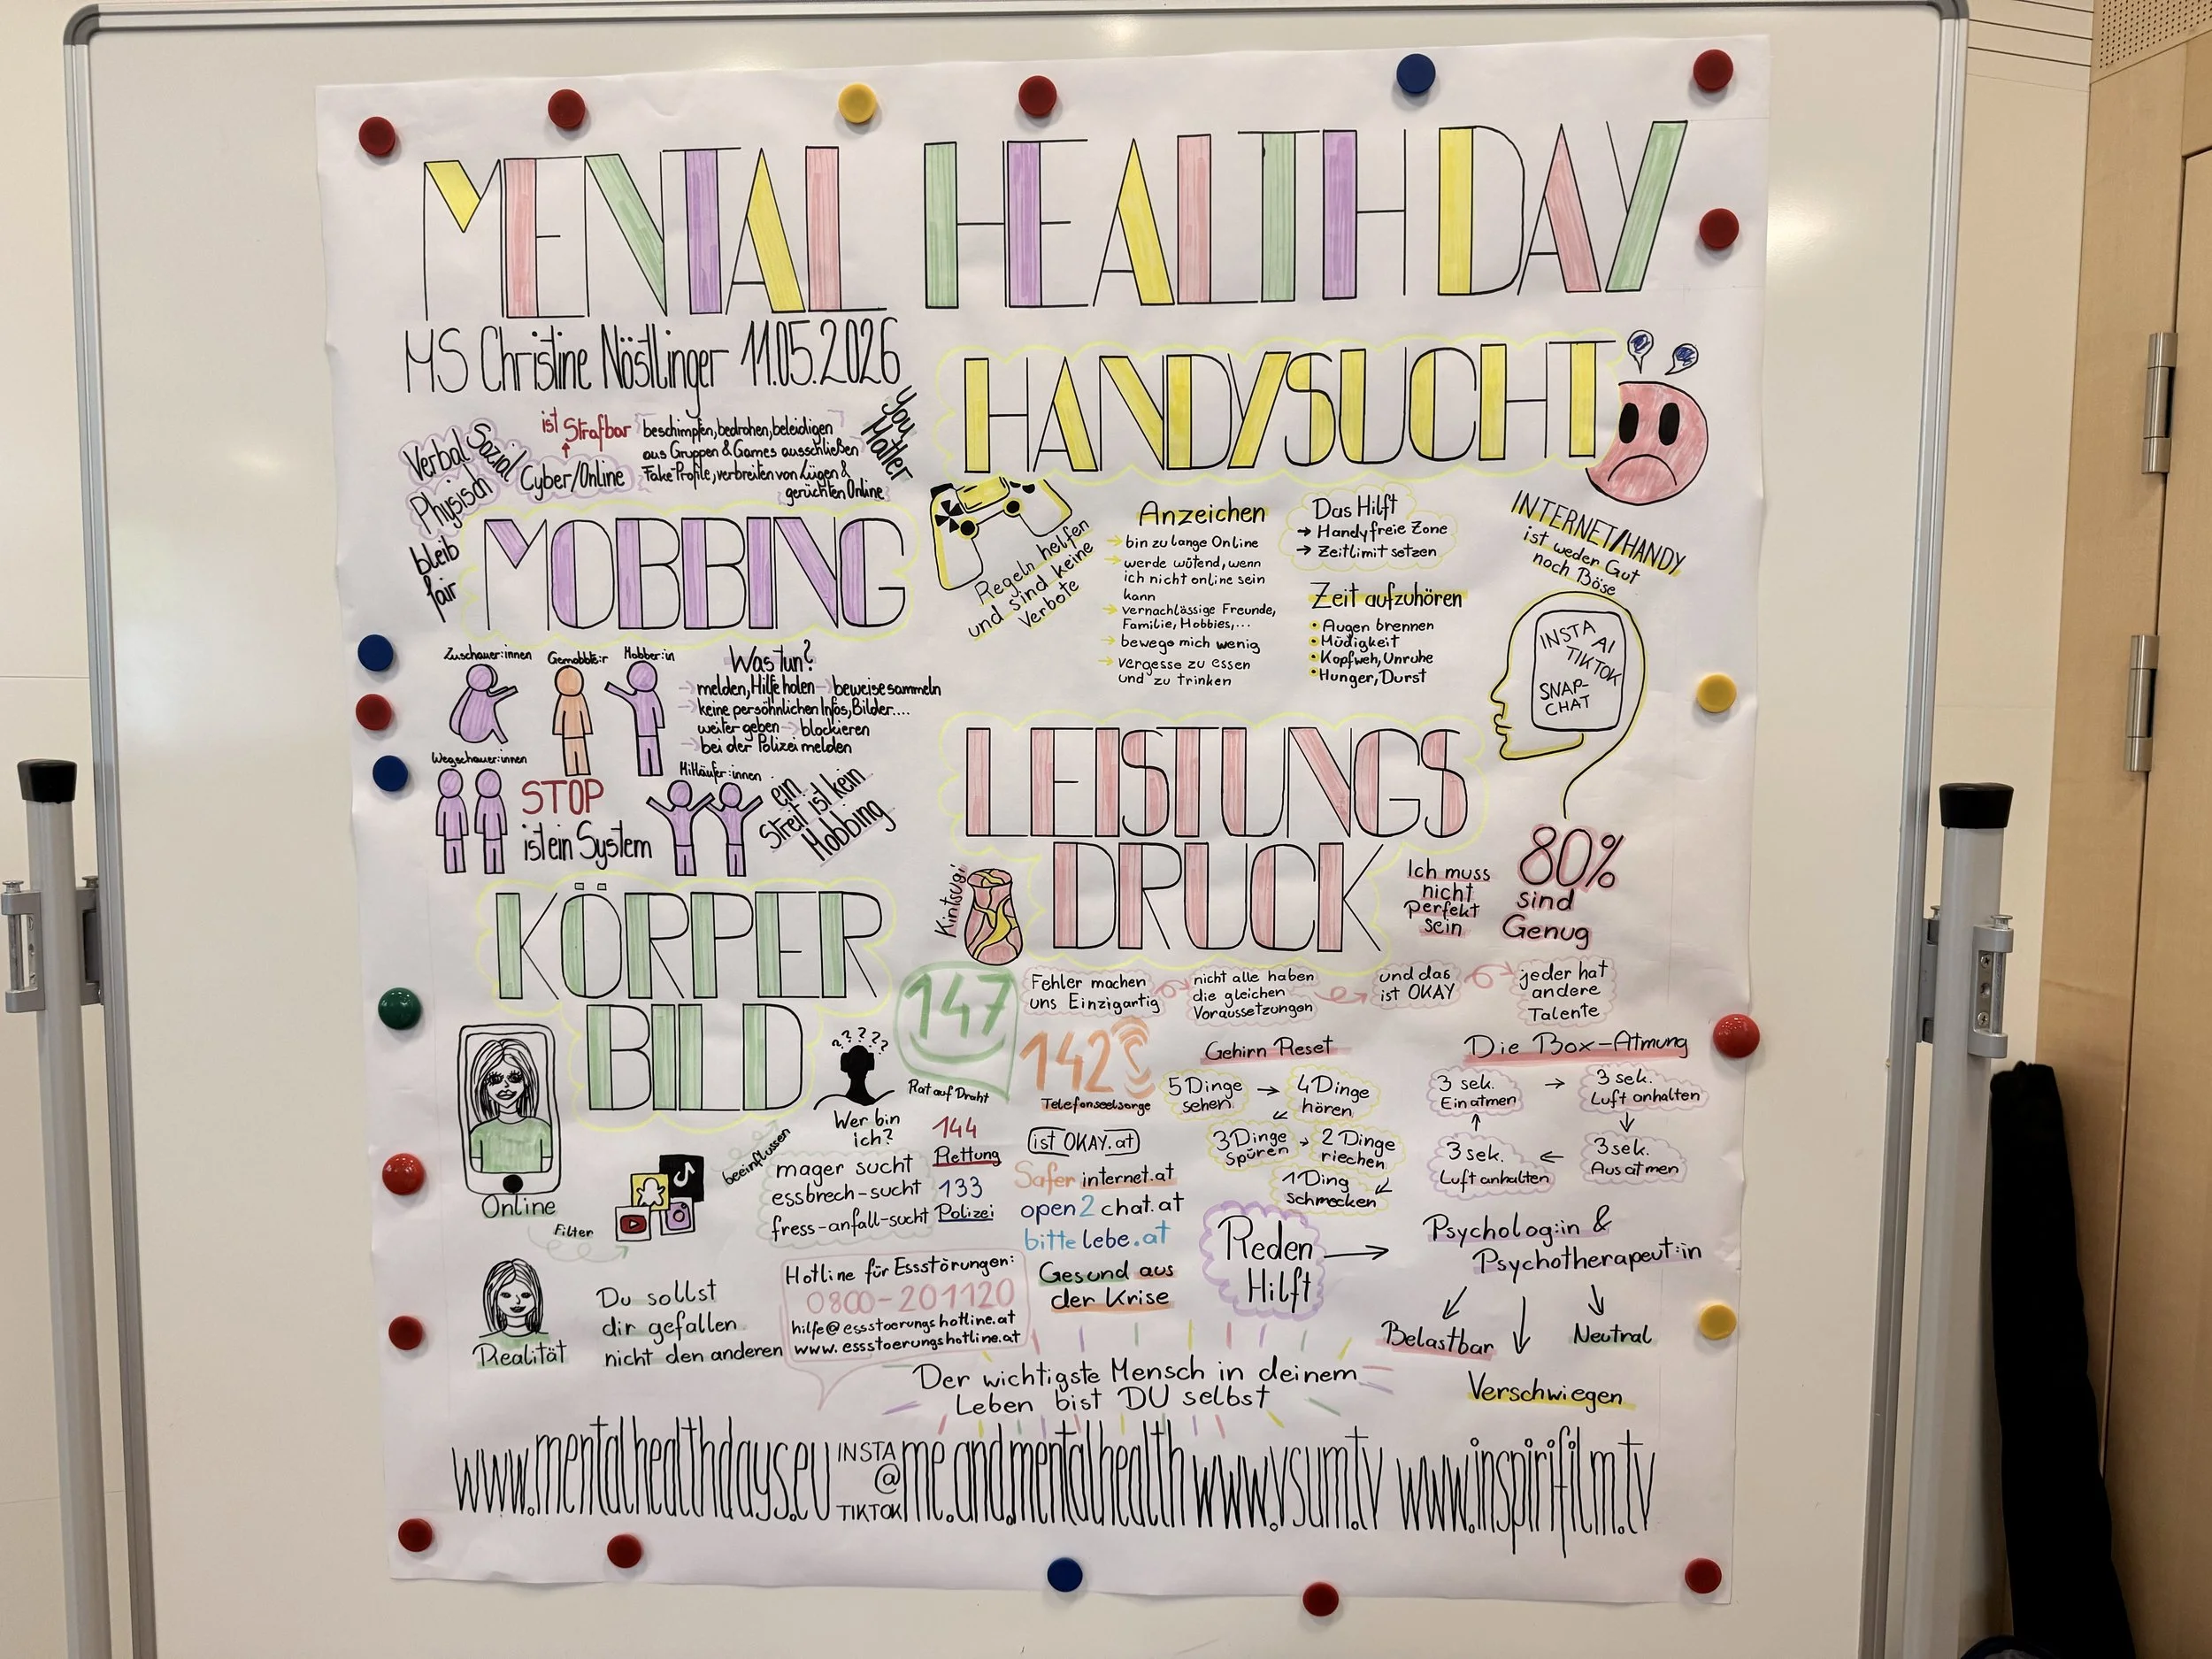 MENTAL HEALTH DAY
MS Christine Nöstlinger 11.05.2026
Verbal
Sozial
Physisch
Cyber/Online
ist Strafbar
beschimpfen, bedrohen, beleidigen
aus Gruppen & Games ausschließen
Fake Profile, verbreiten von Lügen &
gerüchten Online
You
Matter
bleib
fair
MOBBING
Zuschauer:innen
Gemobbte:r
Mobber:in
Was tun?
→ melden, Hilfe holen → beweise sammeln
→ keine persöhnlichen Infos, Bilder....
weiter geben → blockieren
→ bei der Polizei melden
Wegschauer:innen
STOP
ist ein System
Mitläufer:innen
ein
Streit ist kein
Mobbing
HANDYSUCHT
Regeln helfen
und sind keine
Verbote
Anzeichen
→ bin zu lange Online
→ werde wütend, wenn
ich nicht online sein
kann
→ vernachlässige Freunde,
Familie, Hobbies,...
→ bewege mich wenig
→ vergesse zu essen
und zu trinken
Das Hilft
→ Handyfreie Zone
→ Zeitlimit setzen
Zeit aufzuhören
• Augen brennen
• Müdigkeit
• Kopfweh, Unruhe
• Hunger, Durst
INTERNET/HANDY
ist weder Gut
noch Böse
INSTA
AI
TIKTOK
SNAP-
CHAT
LEISTUNGS
DRUCK
Kintsugi
Ich muss
nicht
perfekt
sein
80%
sind
Genug
Fehler machen
uns Einzigartig
nicht alle haben
die gleichen
Voraussetzungen
und das
ist OKAY
jeder hat
andere
Talente
Gehirn Reset
5 Dinge
sehen
→
4 Dinge
hören
3 Dinge
spüren
→
2 Dinge
riechen
1 Ding
schmecken
Die Box-Atmung
3 sek.
Einatmen
→
3 sek.
Luft anhalten
3 sek.
Ausatmen
←
3 sek.
Luft anhalten
KÖRPER
BILD
Online
Filter
Realität
beeinflussen
? ? ? ? ?
Wer bin
ich?
mager sucht
essbrech-sucht
fress-anfall-sucht
Du sollst
dir gefallen
nicht den anderen
147
Rat auf Draht
142
Telefonseelsorge
144
Rettung
133
Polizei
ist OKAY.at
Safer internet.at
open2chat.at
bitte lebe.at
Gesund aus
der Krise
Hotline für Essstörungen:
0800-201120
hilfe@essstoerungshotline.at
www.essstoerungshotline.at
Reden
Hilft
→
Psycholog:in &
Psychotherapeut:in
Belastbar
Neutral
Verschwiegen
Der wichtigste Mensch in deinem
Leben bist DU selbst
www.mentalhealthdays.eu INSTA @ TIKTOK me.and.mentalhealth www.vsum.tv www.inspirifilm.tv